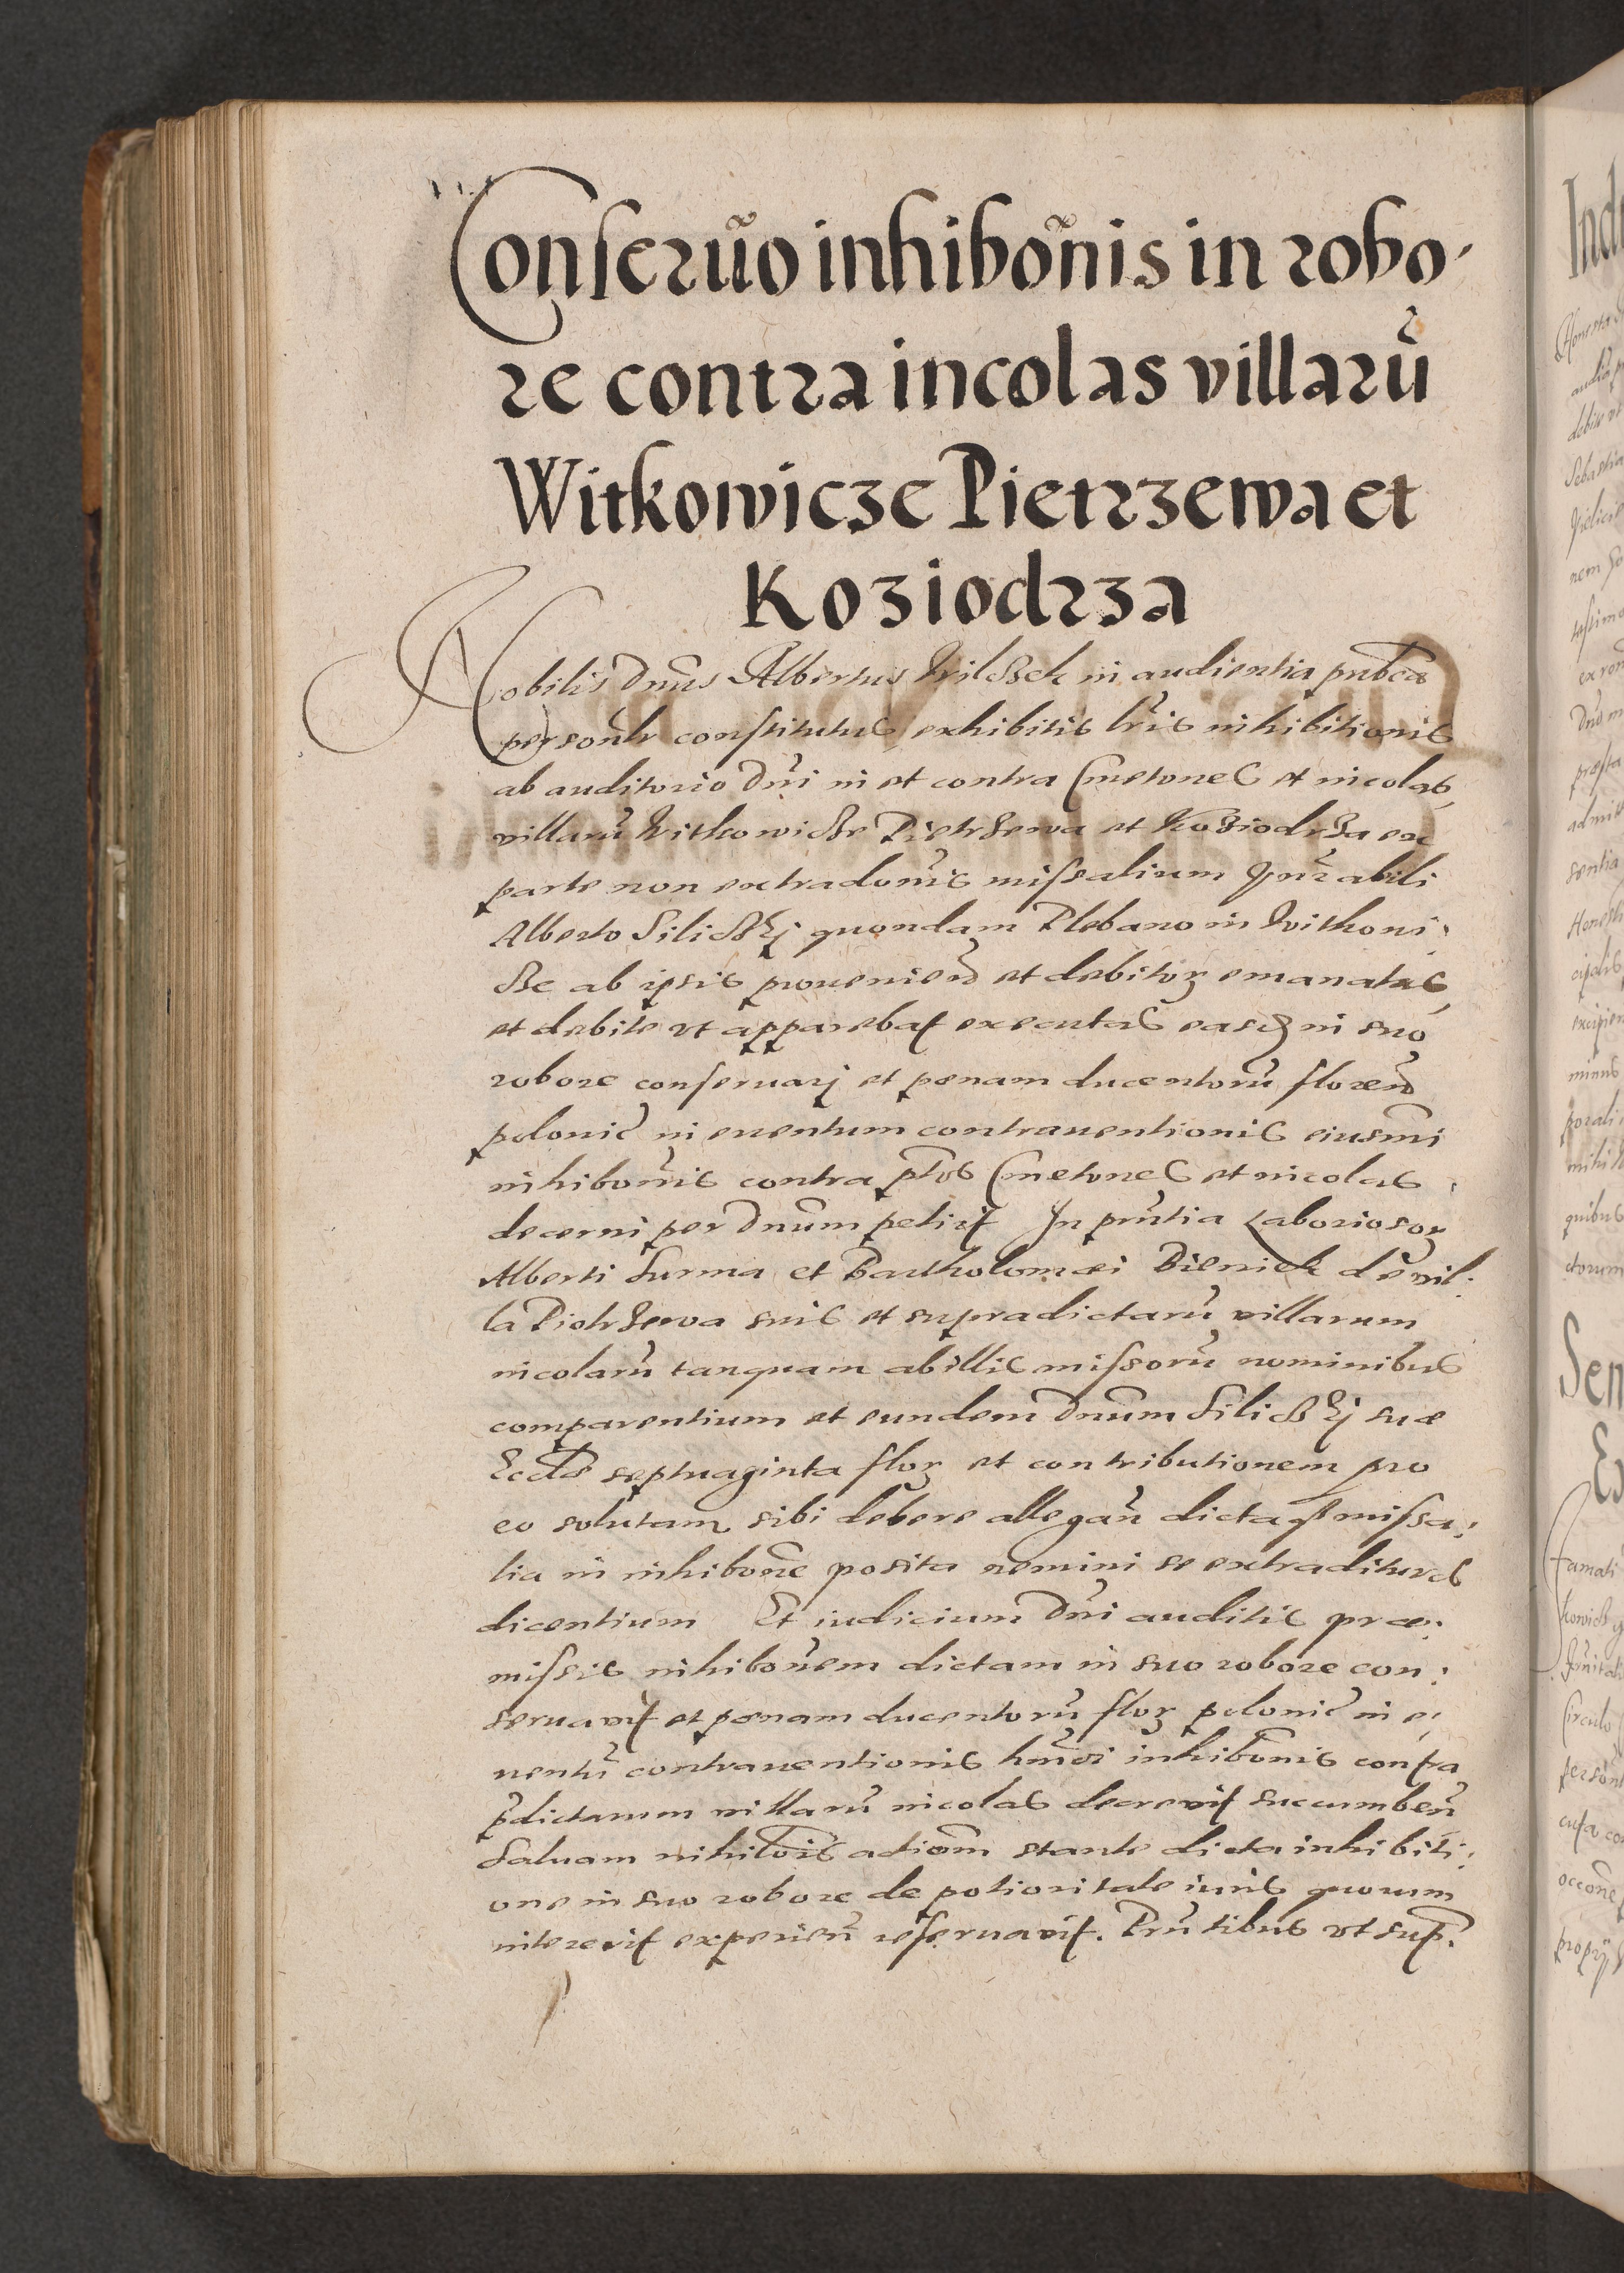 Conseruo inhibonis in robo-
re contra incolas villarū
Witkowicze Pietrzewa et
Koziodrza
Nobilis Dnus Albertus Wilczek in audientia publca
personlr constitutus exhibitis lris inhibitionis
ab auditorio Dni in et contra Cmetones et incolas
villarū Witkowicze Pietrzewa et Koziodrza ex
parte non extradonis missalium abili
Alberto Siliczkj quondam Plebano in Witkowi-
cze ab ipsis proueniend et debitorz emanatas
et debite vt apparebat executas easdem in suo
robore conseruarj et pœnam ducentorū florend
polonic in euentum contrauentionis eiusmi
inhibonis contra ptos Cmetones et incolas
decerni per Dnum petirt In pntia Laboriosorz
Alberti Surma et Bartholomæi Bieniek de vil-
la Piotrzewa suis et supradictarū villarum
incolarū tanquam ab illis missorū nominibus
comparentium et eundem Dnum Siliczkj suæ
Eccliæ septuaginta florz et contributionem pro
eo solutam sibi debere allegan dictaqz missa-
lia in inhibone posita nemini se extradituros
dicentium Et iudicium Dni auditis præ-
missis inhibonem dictam in suo robore con-
seruauit et pœnam ducentorū florz polonic in e-
uentū contrauentionis hmoi inhibonis contra
pdictarum villarū incolas decreuit succumben
Saluam nihilois actiom stante dicta inhibiti-
one in suo robore de potioritate iuris quorum
intererit experien reseruauit. Prntibus vt sup.